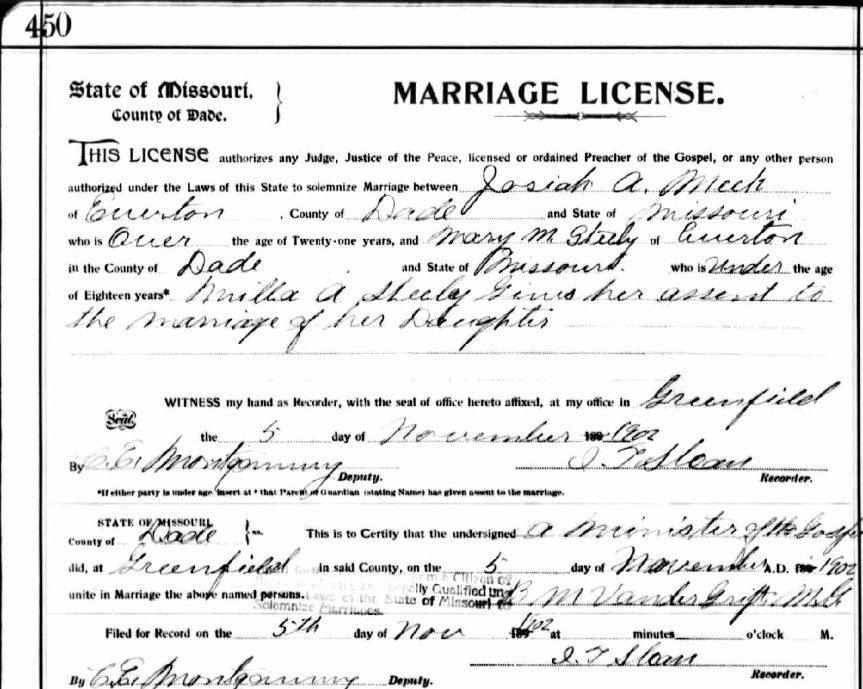 450
State of Missouri,
County of Dade.
MARRIAGE LICENSE.
THIS LICENSE authorizes any Judge, Justice of the Peace, licensed or ordained Preacher of the Gospel, or any other person
authorized under the Laws of this State to solemnize Marriage between Josiah A. Meek
of Everton , County of Dade and State of Missouri
who is Over the age of Twenty-one years, and Mary M Steely of Everton
in the County of Dade and State of Missouri. who is Under the age
of Eighteen years* Milla A Steely Gives her assent to
the marriage of her Daughter
WITNESS my hand as Recorder, with the seal of office hereto affixed, at my office in Greenfield
Seal
the 5 day of November 1902
By C. E. Montgomery Deputy. I T Sloan Recorder.
*If either party is under age, insert at * that Parent or Guardian (stating Name) has given assent to the marriage.
STATE OF MISSOURI, ss.
County of Dade This is to Certify that the undersigned a Minister of the Gospel
did, at Greenfield in said County, on the 5 day of November A.D. 1902
unite in Marriage the above named persons. am a Citizen of
Legally Qualified under
Laws of the State of Missouri to
Solemnize Marriages.
B M VanderGrift M.G.
Filed for Record on the 5th day of Nov 1902 at minutes o'clock M.
I. T Sloan
By C. E. Montgomery Deputy. Recorder.